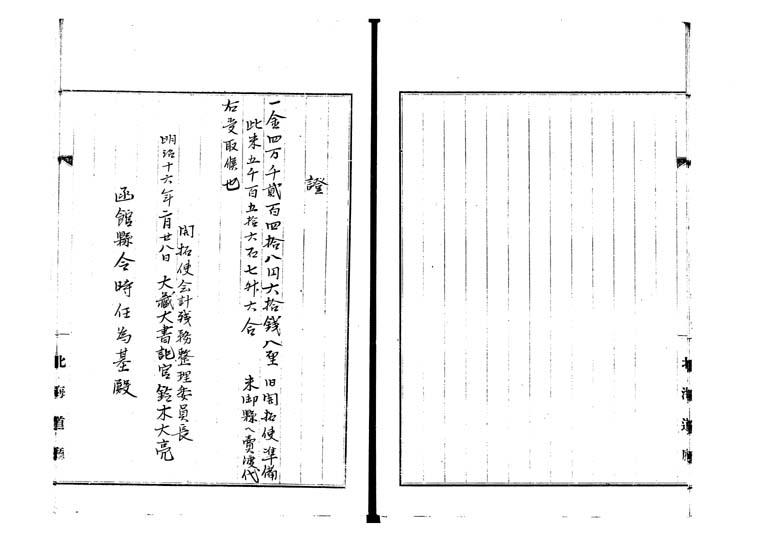 證
一金四万千貳百四拾八円六拾錢八厘 旧開拓使準備
此米五千百五拾六石七舛六合 米御縣ヘ賣渡代
右受取候也
開拓使会計残務整理委員長
明治十六年二月廿八日 大藏大書記官鈴木大亮
函館縣令時任為基殿
北海道廳
北海道廳